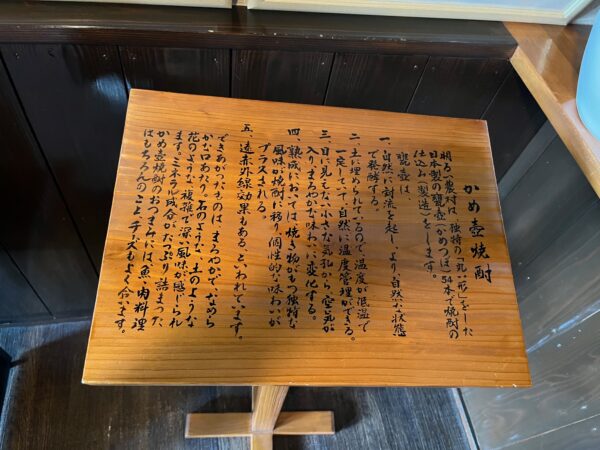 かめ壺焼酎
明るい農村は、独特の丸い形をした
日本製の甕壺(かめつぼ)54本で焼酎の
仕込み(製造)をします。
甕壺は
一、自然に対流を起し、より自然な状態
で発酵する
二、土に埋められているので温度が低温で
一定していて、自然に温度管理ができる。
三、目に見えない小さな気孔から、空気が
入り、まろやかな味わいに変化する。
四、熟成においては、焼き物がもつ独特な
風味が焼酎に移り個性的な味わいが
プラスされる。
五、遠赤外線効果もある、といわれています。
できあがったものは、まろやかで、なめら
かな口あたり。石のような、土のような
花のような、複雑で深い風味が感じられ
ます。ミネラル成分がたっぷり詰まった
かめ壺焼酎のおつまみには、魚、肉料理
はもちろんのこと、チーズもよく合います。